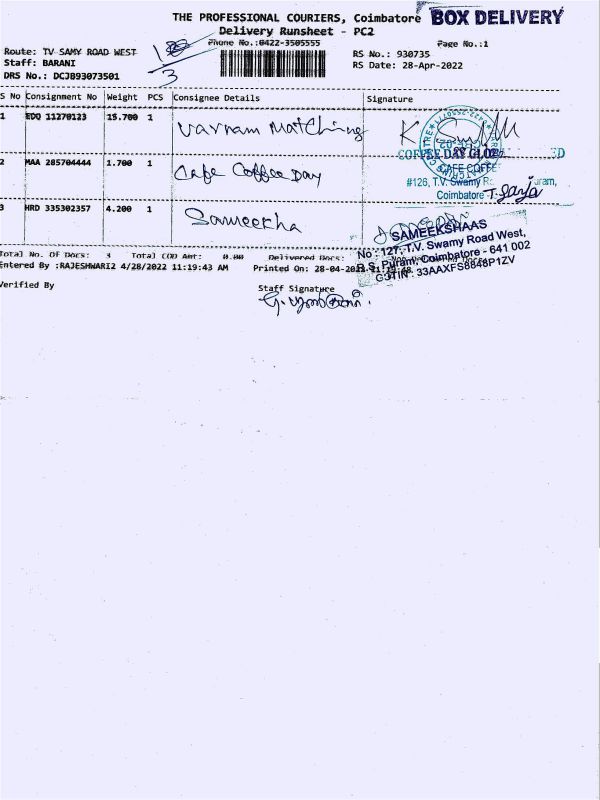 THE PROFESSIONAL COURIERS, Coimbatore BOX DELIVERY
Delivery Runsheet - PC2
Phone No.:0422-3505555 Page No.:1
Route: TV SAMY ROAD WEST RS No.: 930735
Staff: BARANI RS Date: 28-Apr-2022
DRS No.: DCJB93073501 3
S No Consignment No Weight PCS Consignee Details Signature
1 EDQ 11270123 15.700 1 Varnam Matching
2 MAA 285704444 1.700 1 Cafe Coffee Day
COFFEE DAY GLOB
CAFE COFFE
#126, T.V. Swamy R
Coimbatore
3 HRD 335302357 4.200 1 Sameekha
SAMEEKSHAAS
No : 127, T.V. Swamy Road West,
R.S. Puram, Coimbatore - 641 002
GSTIN : 33AAXFS8848P1ZV
Total No. Of Docs: 3 Total COD Amt: 0.00 Delivered Docs:
Entered By :RAJESHWARI2 4/28/2022 11:19:43 AM Printed On: 28-04-2022
Verified By Staff Signature